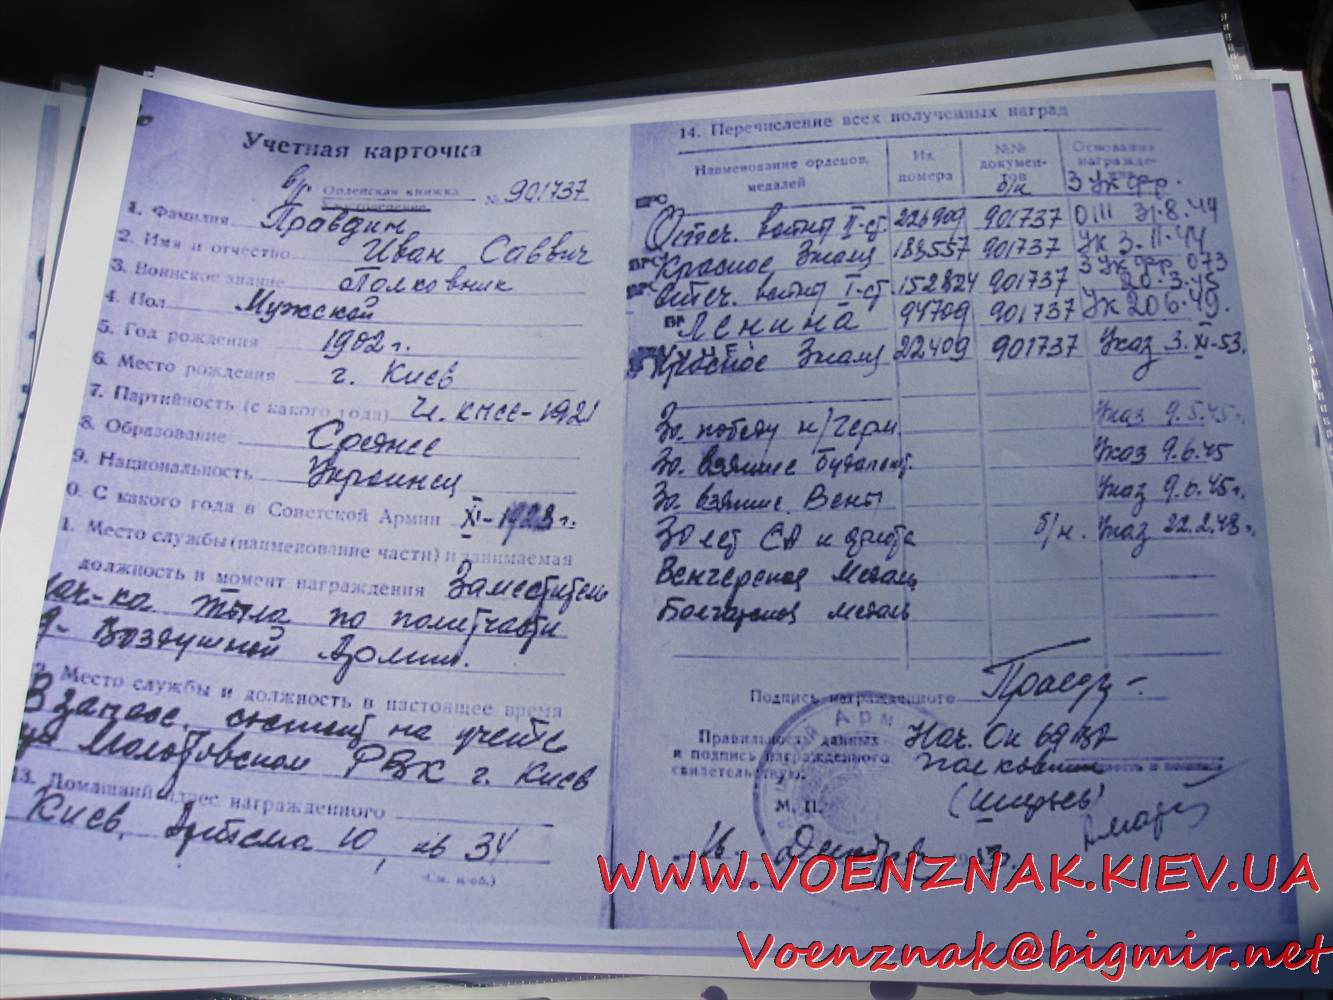 Учетная карточка
вр. Орденская книжка № 901737
Удостоверение
1. Фамилия Правдин
2. Имя и отчество Иван Саввич
3. Воинское звание Полковник
4. Пол Мужской
5. Год рождения 1902 г.
6. Место рождения г. Киев
7. Партийность (с какого года) Чл. КПСС - 1921
8. Образование Среднее
9. Национальность Украинец
0. С какого года в Советской Армии XI-1923 г.
1. Место службы (наименование части) и занимаемая
должность в момент награждения Заместитель
нач-ка Тыла по политчасти
Воздушной Армии.
2. Место службы и должность в настоящее время
В запасе, состоит на учете
Молотовском РВК г. Киев
13. Домашний адрес награжденного
Киев, Артема 10, кв 34
(См. н/об.)
14. Перечисление всех полученных наград
Наименование орденов, медалей
Их номера
№№ документов
Основание награждения
б/н
3 Ук фр.
Отеч. войны II-ст 901737 0111 31.8.44
Красное Знамя 183557 901737 Ук 3.11.44
3 Ук фр 073
Отеч. войны I-ст 152824 901737 20.3.45
Ленина 94709 901737 Ук 20.6.49.
Красное Знамя 22409 901737 Указ 3.XI-53.
За победу н/Герм. Указ 9.5.45г.
За взятие Будапешт. Указ 9.6.45
За взятие Вены Указ 9.6.45г.
30 лет СА и флота б/н. Указ 22.2.48г.
Венгерская Медаль
Болгарская медаль
Подпись награжденного
Правильность данных
и подпись награжденного
свидетельствую:
Нач.
полковник
М. П.
16 Декабря
WWW.VOENZNAK.KIEV.UA
Voenznak@bigmir.net